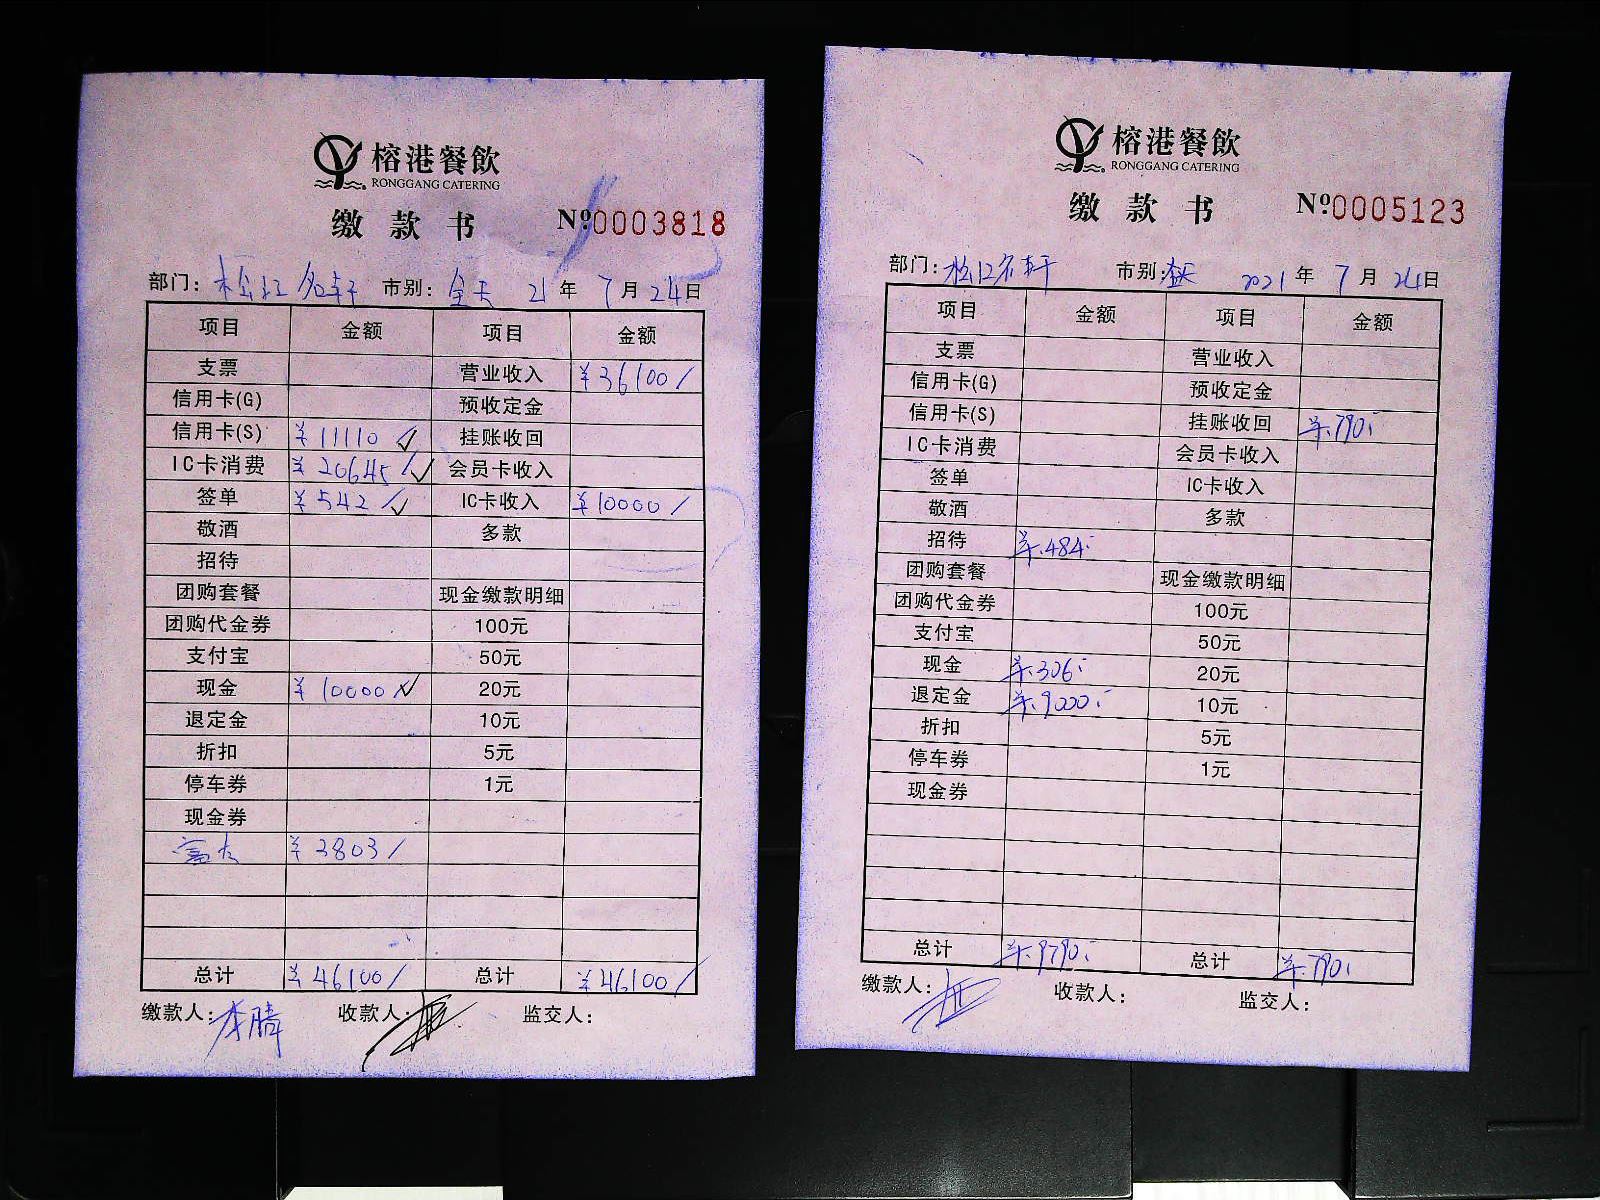 榕港餐飲
RONGGANG CATERING
缴款书 Nº0003818
部门: 松江名轩 市别: 全天 21年7月24日
项目 金额 项目 金额
支票 营业收入 ¥36100/
信用卡(G) 预收定金
信用卡(S) ¥11110 挂账收回
IC卡消费 ¥20645/ 会员卡收入
签单 ¥542/ IC卡收入 ¥10000/
敬酒 多款
招待
团购套餐 现金缴款明细
团购代金券 100元
支付宝 50元
现金 ¥10000 20元
退定金 10元
折扣 5元
停车券 1元
现金券
¥3803/
总计 ¥46100/ 总计 ¥46100/
缴款人: 李腾 收款人: 监交人:
榕港餐飲
RONGGANG CATERING
缴款书 Nº0005123
部门: 松江名轩 市别: 全天 2021年7月24日
项目 金额 项目 金额
支票 营业收入
信用卡(G) 预收定金
信用卡(S) 挂账收回 ¥.790.
IC卡消费 会员卡收入
签单 IC卡收入
敬酒 多款
招待 ¥.484.
团购套餐 现金缴款明细
团购代金券 100元
支付宝 50元
现金 ¥.306. 20元
退定金 ¥.9000. 10元
折扣 5元
停车券 1元
现金券
总计 ¥.9790. 总计 ¥.790.
缴款人: 收款人: 监交人: